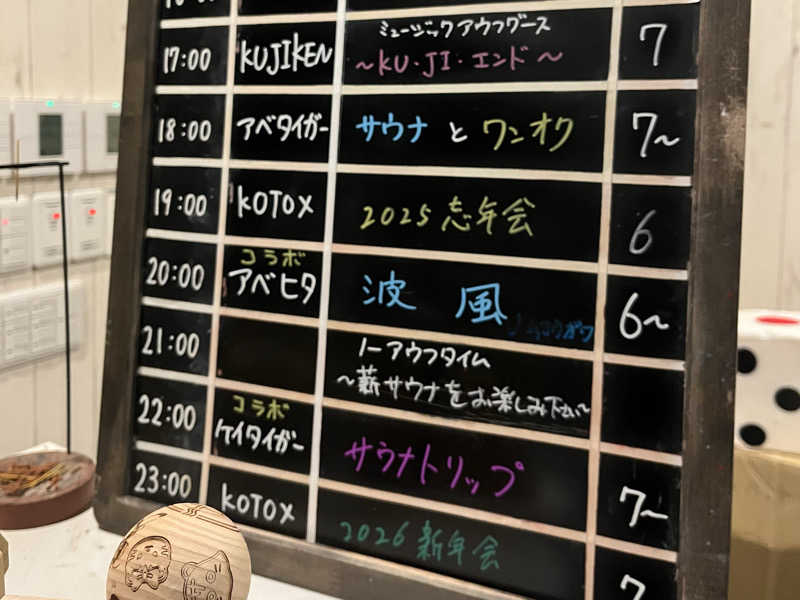 ミュージックアウフグース
17:00 KUJIKEN ~KU・JI・エンド~ 7
18:00 アベタイガー サウナ と ワンオク 7~
19:00 KOTOX 2025 忘年会 6
コラボ
20:00 アベヒタ 波 風 6~
21:00 ノーアウフタイム
~薪サウナをお楽しみ下さい~
コラボ
22:00 ケイタイガー サウナトリップ 7~
23:00 KOTOX 2026 新年会 7